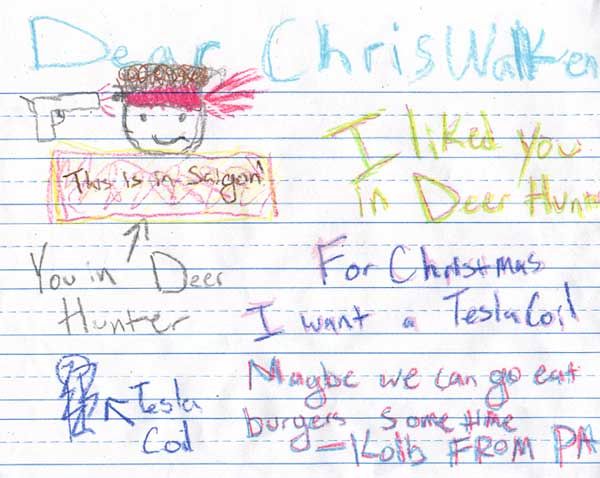 Dear Chris Walken
This is in Saigon!
I liked you
in Deer Hunter
You in Deer
Hunter
For Christmas
I want a Tesla Coil
Tesla
Coil
Maybe we can go eat
burgers some time
— Kolb FROM PA